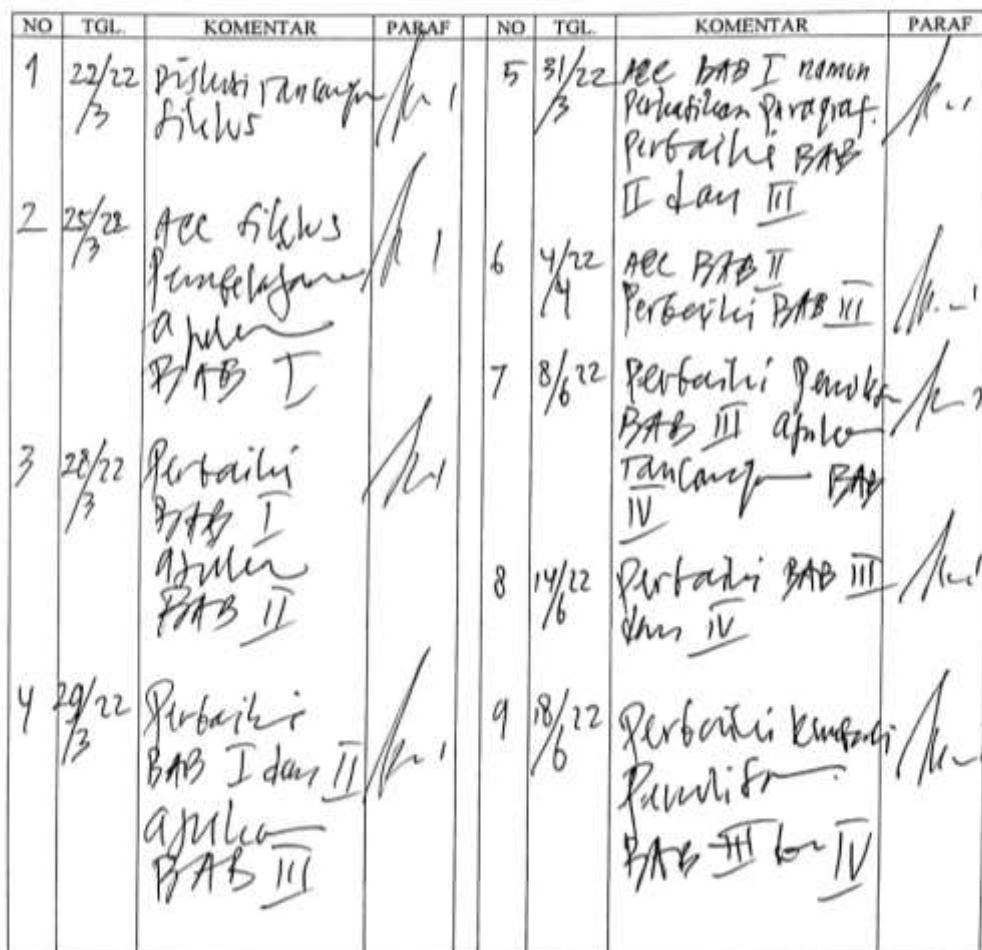 NO TGL. KOMENTAR PARAF
1 22/22 Diskusi rancangan
3 siklus
2 25/22 Acc siklus
3 Pembelajaran
ajukan
BAB I
3 28/22 Perbaiki
3 BAB I
ajukan
BAB II
4 29/22 Perbaiki
3 BAB I dan II
ajukan
BAB III
NO TGL. KOMENTAR PARAF
5 31/22 Acc BAB I namun
3 Perhatikan Paragraf.
Perbaiki BAB
II dan III
6 4/22 Acc BAB II
4 Perbaiki BAB III
7 8/22 Perbaiki
6 BAB III ajukan
rancangan BAB
IV
8 14/22 Perbaiki BAB III
6 dan IV
9 18/22 Perbaiki kembali
6 Penulisan
BAB III dan IV